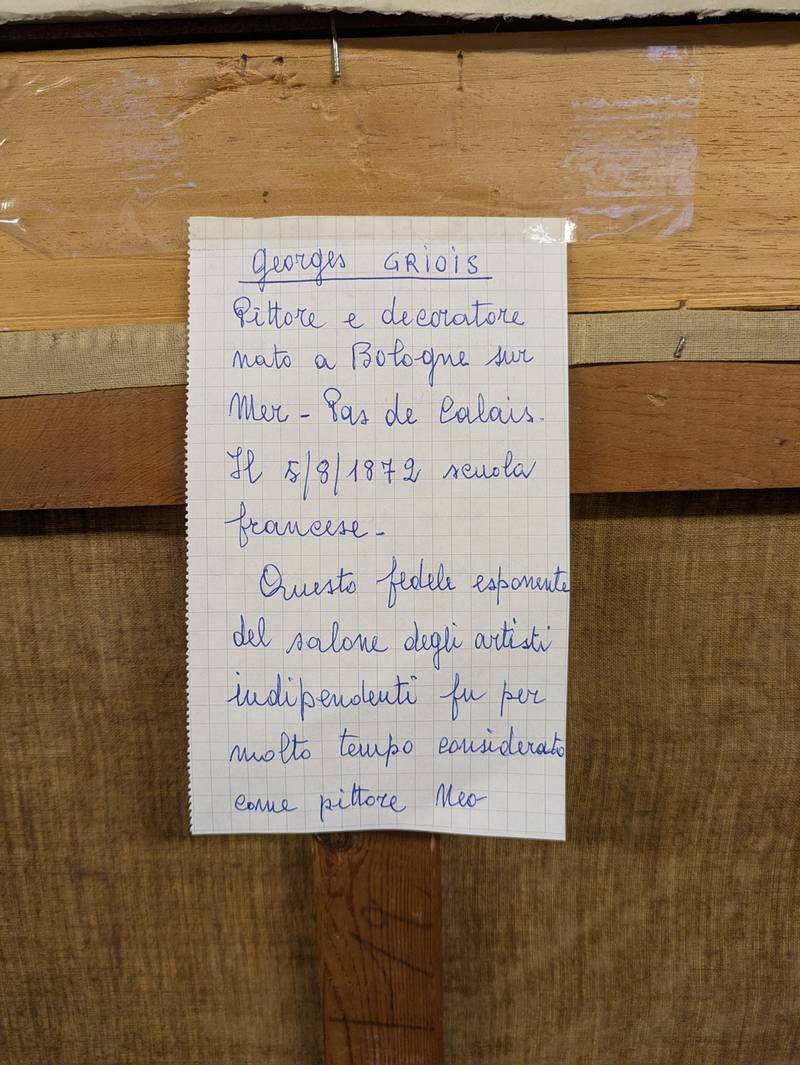 Georges GRIOIS
Pittore e decoratore
nato a Bologne sur
Mer - Pas de Calais.
Il 5/8/1872 scuola
francese -
Questo fedele esponente
del salone degli artisti
indipendenti fu per
molto tempo considerato
come pittore Neo